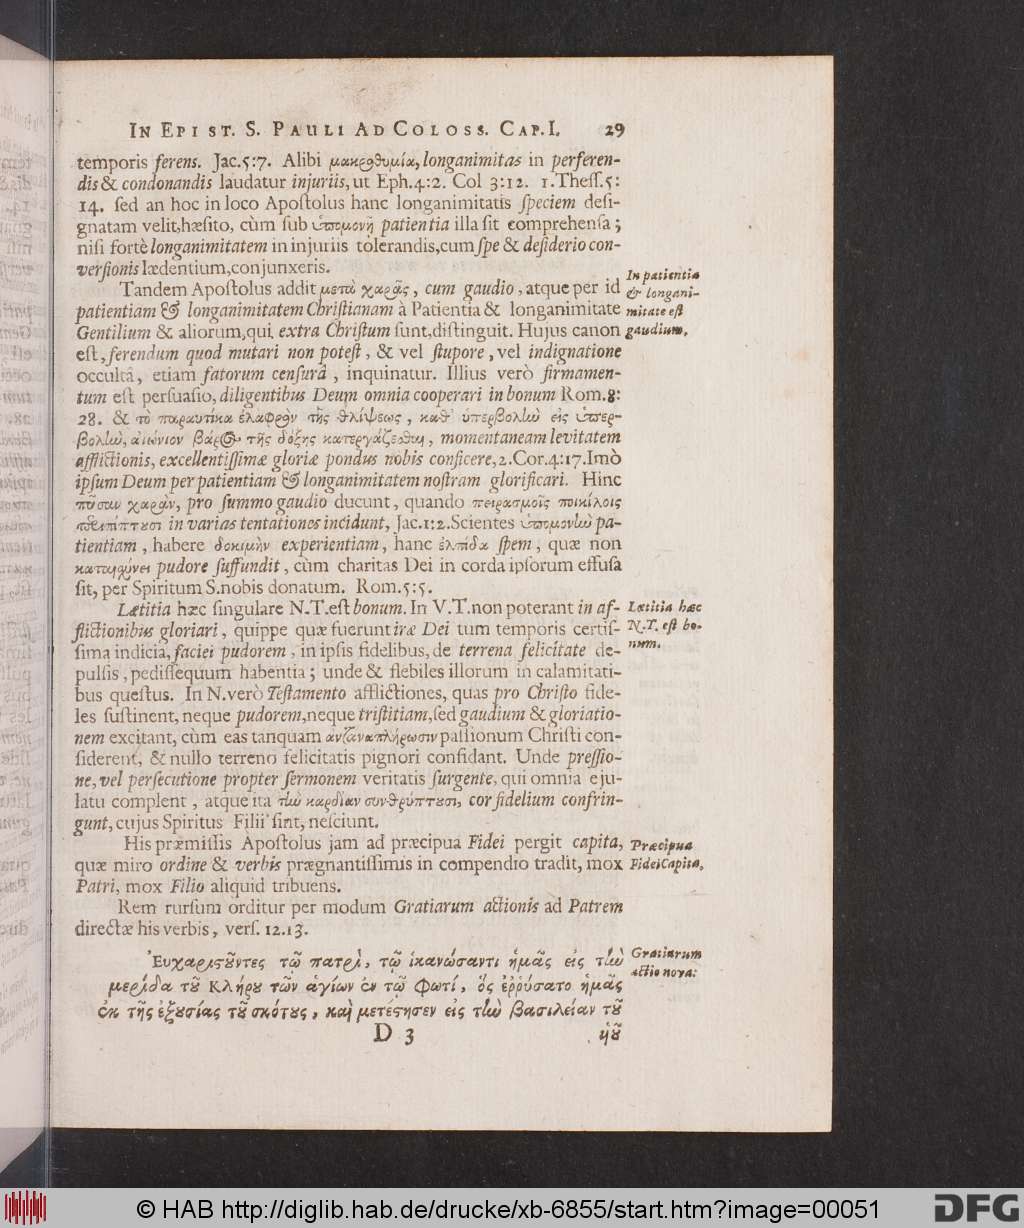 IN EPIST. S. PAULI AD COLOSS. CAP. I. 29
temporis ferens. Jac.5:7. Alibi μακροθυμία, longanimitas in perferen-
dis & condonandis laudatur injuriis, ut Eph.4:2. Col 3:12. 1.Theſſ.5:
14. ſed an hoc in loco Apoſtolus hanc longanimitatis ſpeciem deſi-
gnatam velit, hæſito, cùm ſub ὑπομονῇ patientia illa ſit comprehenſa;
niſi fortè longanimitatem in injuriis tolerandis, cum ſpe & deſiderio con-
verſionis lædentium, conjunxeris.
Tandem Apoſtolus addit μετὰ χαρᾶς, cum gaudio, atque per id
patientiam & longanimitatem Chriſtianam à Patientia & longanimitate
Gentilium & aliorum, qui extra Chriſtum ſunt, diſtinguit. Hujus canon
eſt, ferendum quod mutari non poteſt, & vel ſtupore, vel indignatione
occultâ, etiam fatorum cenſurâ, inquinatur. Illius verò firmamen-
tum eſt perſuaſio, diligentibus Deum omnia cooperari in bonum Rom.8:
28. & τὸ παραυτίκα ἐλαφρὸν τῆς θλίψεως, καθ' ὑπερβολὴν εἰς ὑπερ-
βολὴν, αἰώνιον βάρος τῆς δόξης κατεργάζεσθαι, momentaneam levitatem
afflictionis, excellentiſſimæ gloriæ pondus nobis conficere, 2.Cor.4:17. Imò
ipſum Deum per patientiam & longanimitatem noſtram glorificari. Hinc
πᾶσαν χαρὰν, pro ſummo gaudio ducunt, quando πειρασμοῖς ποικίλοις
περιπίπτουσι in varias tentationes incidunt, Jac.1:2. Scientes ὑπομονὴν pa-
tientiam, habere δοκιμὴν experientiam, hanc ἐλπίδα ſpem, quæ non
καταισχύνει pudore ſuffundit, cùm charitas Dei in corda ipſorum effuſa
ſit, per Spiritum S. nobis donatum. Rom.5:5.
Lætitia hæc ſingulare N.T. eſt bonum. In V.T. non poterant in af-
flictionibus gloriari, quippe quæ fuerunt iræ Dei tum temporis certiſ-
ſima indicia, faciei pudorem, in ipſis fidelibus, de terrena felicitate de-
pulſis, pediſſequum habentia; unde & flebiles illorum in calamitati-
bus queſtus. In N. verò Teſtamento afflictiones, quas pro Chriſto fide-
les ſuſtinent, neque pudorem, neque triſtitiam, ſed gaudium & gloriatio-
nem excitant, cùm eas tanquam ἀνταναπλήρωσιν paſſionum Chriſti con-
ſiderent, & nullo terreno felicitatis pignori confidant. Unde preſſio-
ne, vel perſecutione propter ſermonem veritatis ſurgente, qui omnia eju-
latu complent, atque ita τὴν καρδίαν συνθρύπτουσι, cor fidelium confrin-
gunt, cujus Spiritus Filii ſint, neſciunt.
His præmiſſis Apoſtolus jam ad præcipua Fidei pergit capita,
quæ miro ordine & verbis prægnantiſſimis in compendio tradit, mox
Patri, mox Filio aliquid tribuens.
Rem rurſum orditur per modum Gratiarum actionis ad Patrem
directæ his verbis, verſ. 12.13.
Ἐυχαριστοῦντες τῷ πατρὶ, τῷ ἱκανώσαντι ἡμᾶς εἰς τὴν
μερίδα τοῦ Κλήρου τῶν ἁγίων ἐν τῷ Φωτί, ὅς ἐῤῥύσατο ἡμᾶς
ἐκ τῆς ἐξουσίας τοῦ σκότους, καὶ μετέστησεν εἰς τὴν βασιλείαν τοῦ
D 3 ὑιοῦ
In patientia
& longani-
mitate eſt
gaudium.
Lætitia hæc
N.T. eſt bo-
num.
Præcipua
Fidei Capita.
Gratiarum
actio nova:
© HAB http://diglib.hab.de/drucke/xb-6855/start.htm?image=00051
DFG